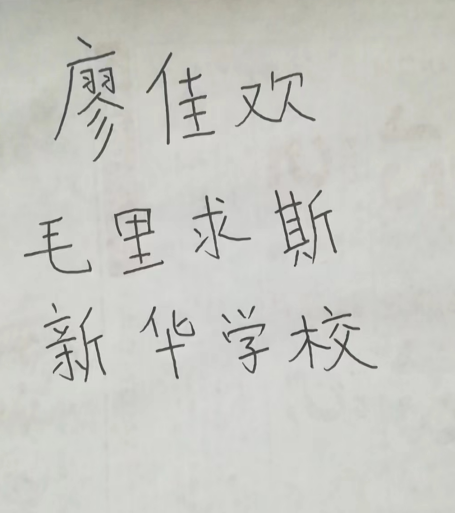 廖佳欢
毛里求斯
新华学校